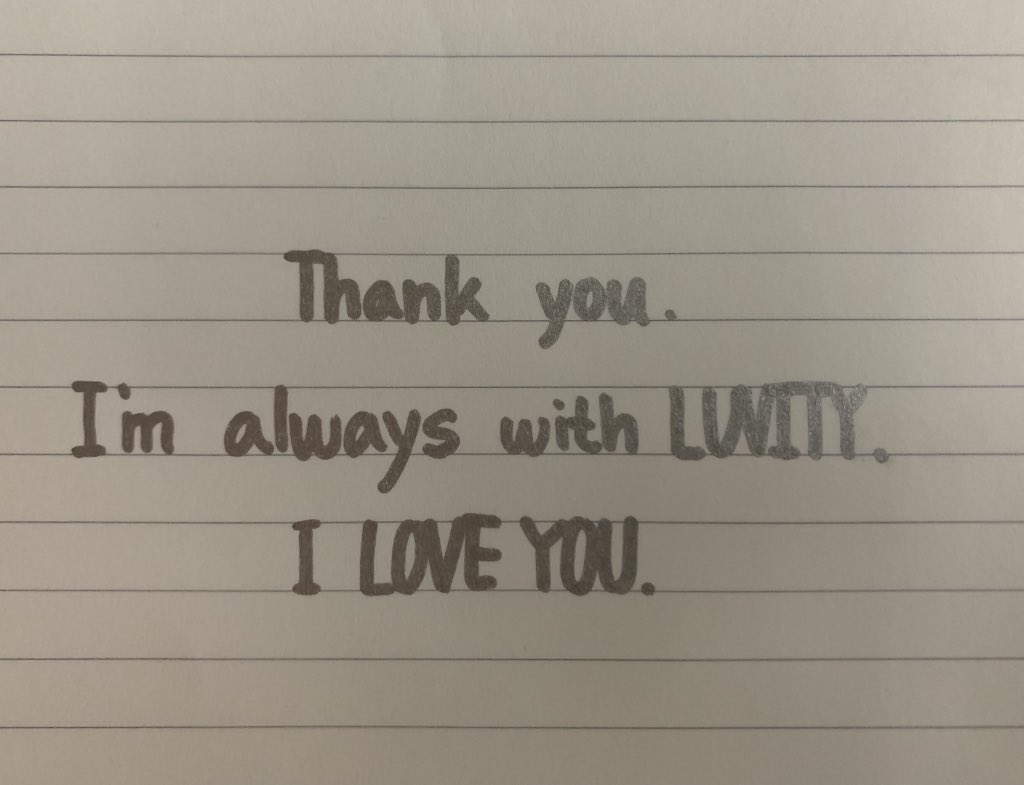 Thank you.
I'm always with LUVITY.
I LOVE YOU.